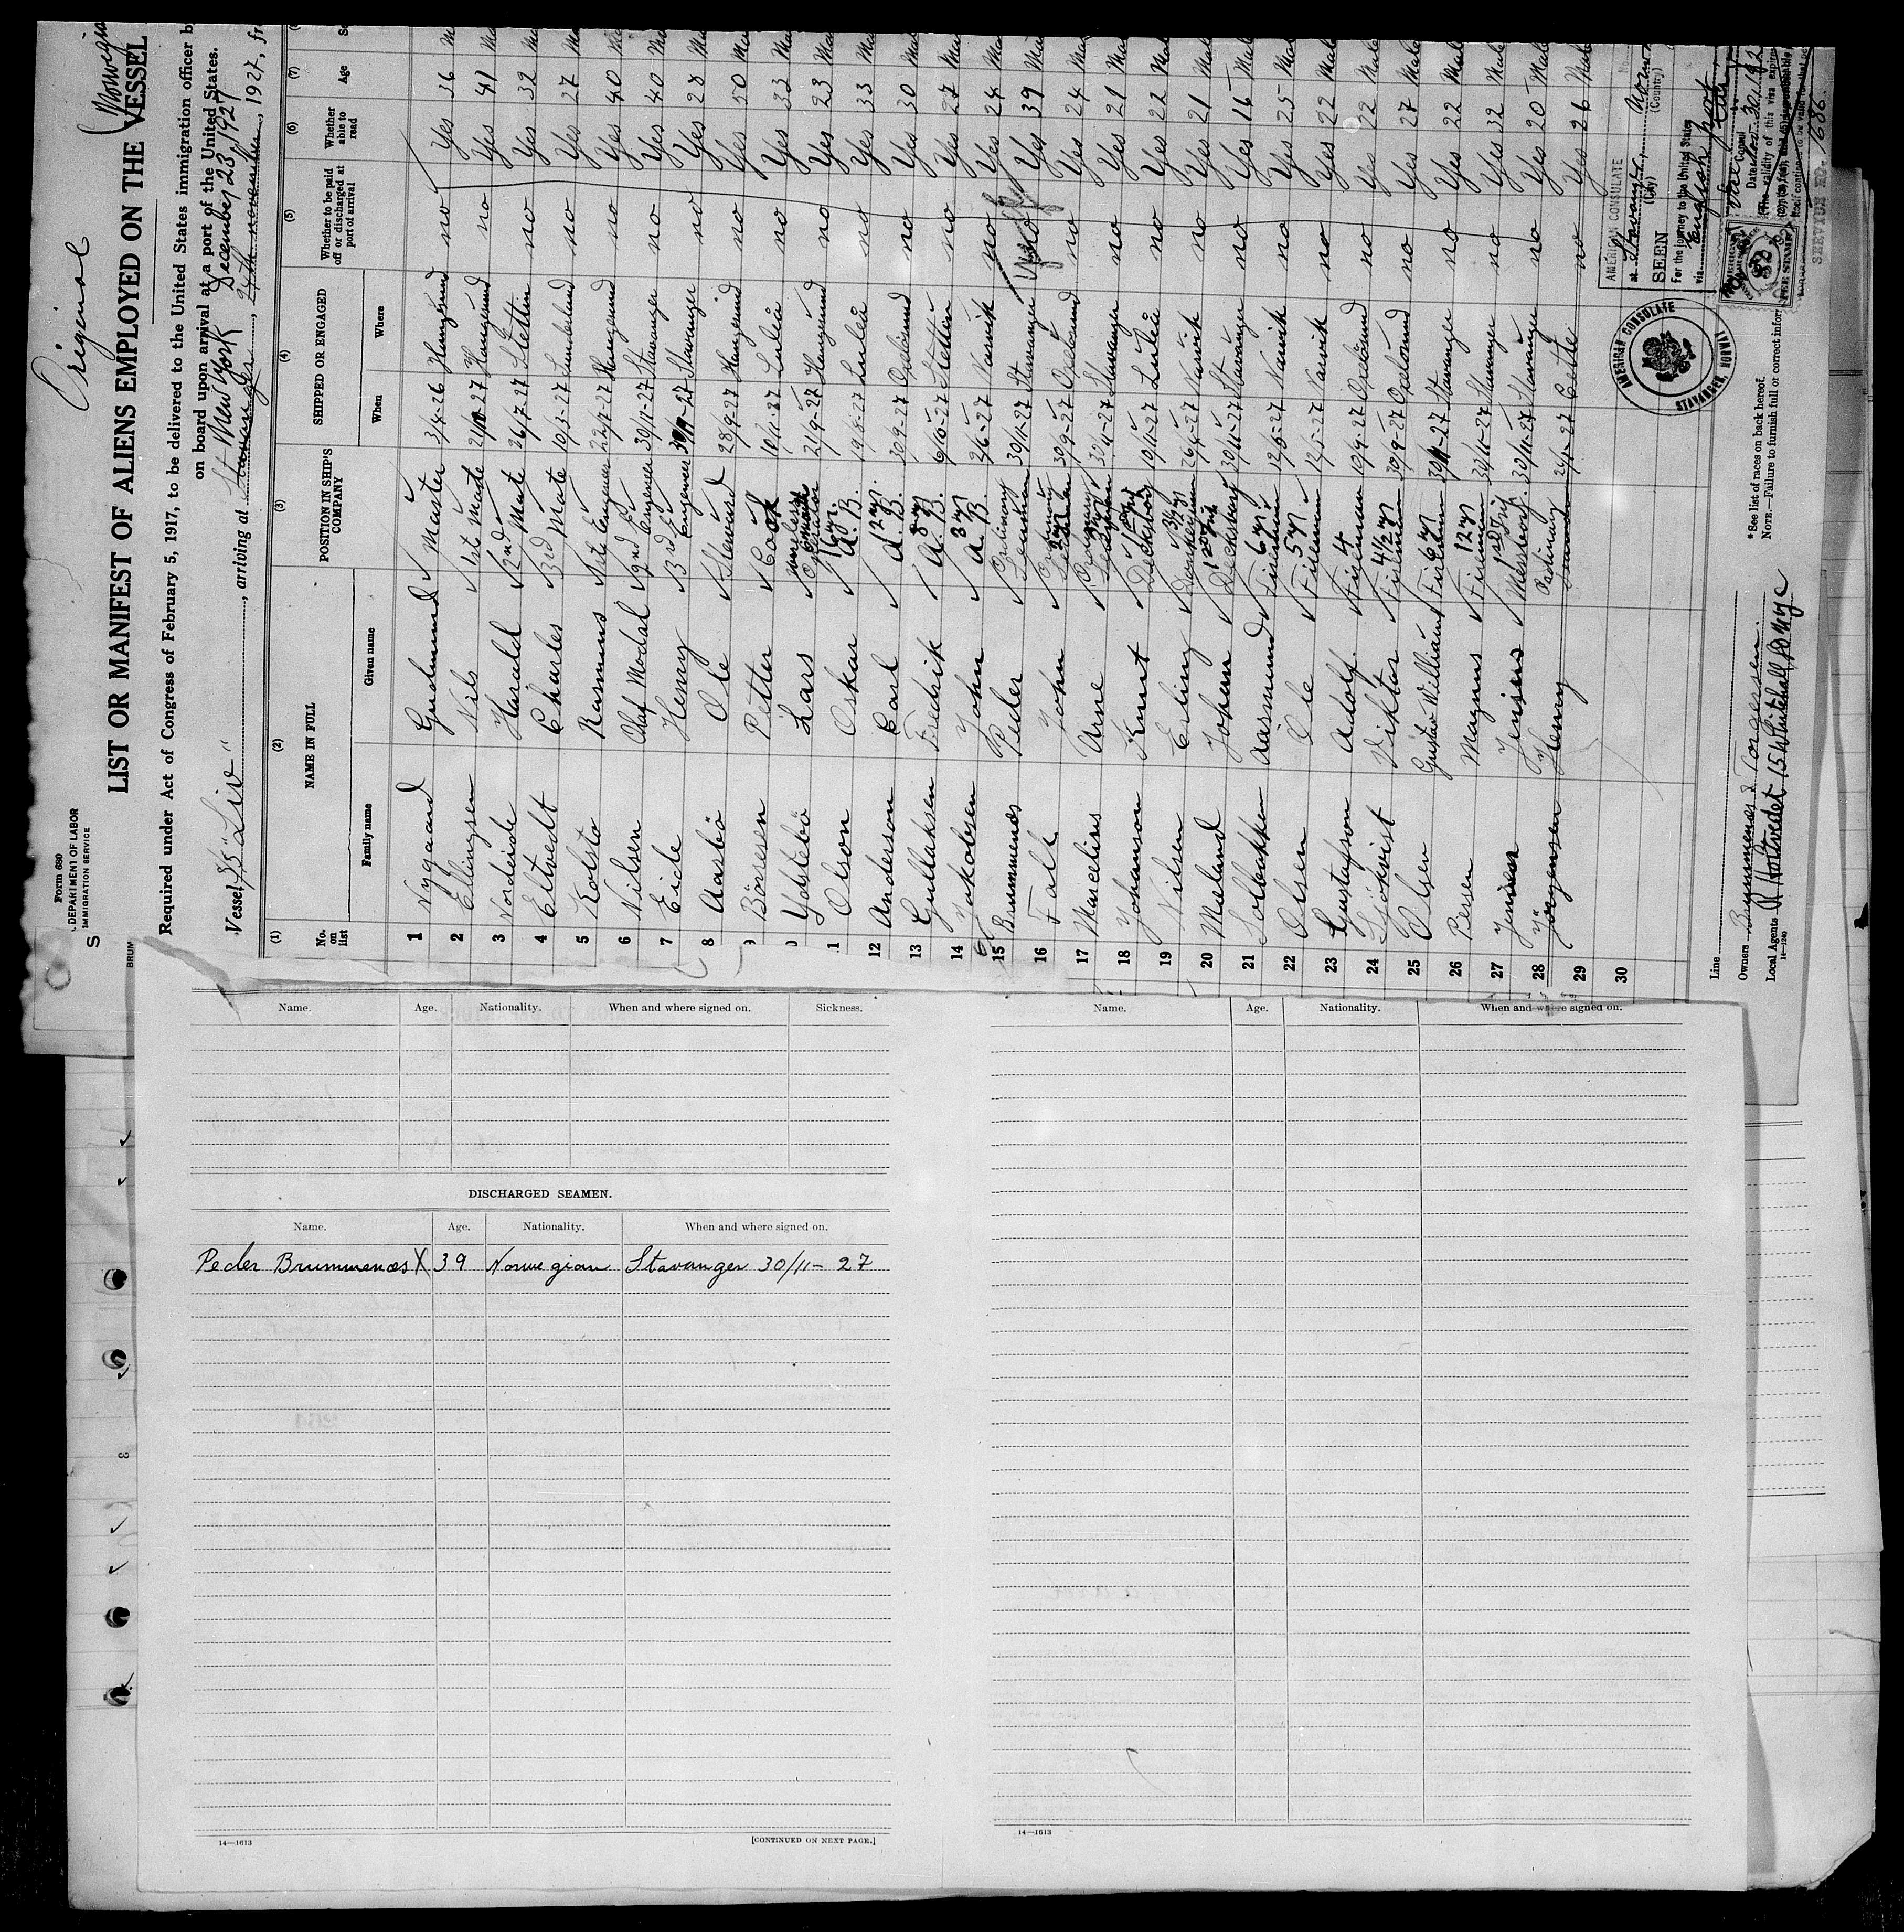 Original
Form 680
DEPARTMENT OF LABOR
IMMIGRATION SERVICE
LIST OR MANIFEST OF ALIENS EMPLOYED ON THE VESSEL
Required under Act of Congress of February 5, 1917, to be delivered to the United States immigration officer b
on board upon arrival at a port of the United States.
Vessel SS "Liv" , arriving at New York December 23, 1927
Stavanger, 24th november, 1927, fr
(1) (2) (3) (4) (5) (6) (7)
No. on list NAME IN FULL POSITION IN SHIP'S COMPANY SHIPPED OR ENGAGED Whether to be paid off or discharged at port of arrival Whether able to read Age
Family name Given name When Where
1 Nygaard Gudmund Master 3/4-26 Haugesund no Yes 36
2 Ellingsen Nils 1st Mate Haugesund no Yes 41
3 Nordeide Harald 2nd Mate 26/7-27 Stettin no Yes 32
4 Eltvedt Charles 3rd Mate 10/3-27 Sunderland no Yes 27
5 Kolsto Rasmus 1ste Engineer 22/7-27 Haugesund no Yes 40
6 Nilsen Olaf Modal 2nd Engeneer 30/11-27 Stavanger no Yes 40
7 Eide Henry 3rd Engeneer 30/11-27 Stavanger no Yes 28
8 Aasbö Ole Steward 28/9-27 Haugesund no Yes 50
9 Börresen Petter Cook 10/11-27 Luleå no Yes 33
10 Ydstebö Lars Operator 21/9-27 Haugesund no Yes 23
11 Olson Oskar A.B. 19/8-27 Luleå no Yes 33
12 Anderson Carl 12 yr A.B. 30/9-27 Oxelösund no Yes 30
13 Gullaksen Fredrik 8 yr A.B. 6/10-27 Stettin no Yes 27
14 Jakobsen John 3 yr A.B. 2/6-27 Narvik no Yes 24
15 Brummenæs Peder Ordinary Seaman 30/11-27 Stavanger Yes 39
16 Falk John Ordinary Seaman 30/9-27 Oxelösund no Yes 24
17 Marcelius Arne Ordinary Seaman 30/11-27 Stavanger no Yes 21
18 Johanson Knut Decksboy 10/11-27 Luleå no Yes 22
19 Nilsen Erling Donkeyman 26/4-27 Narvik no Yes 21
20 Meland Johan Decksboy 30/11-27 Stavanger no Yes 16
21 Solbakken Aasmund 6 yr Fireman 12/8-27 Narvik no Yes 25
22 Olsen Ole 5 yr Fireman 12/5-27 Narvik no Yes 22
23 Gustafson Adolf 4 Fireman 19/9-27 Oxelösund no Yes 22
24 Sjökvist Viktor 4 1/2 yr Fireman 30/9-27 Oxelösund no Yes 27
25 Olsen Gustav William 6 yr Fireman 30/11-27 Stavanger no Yes 22
26 Bessen Magnus 12 yr Fireman 30/11-27 Stavanger no Yes 32
27 Jensen Jensen Messboy 30/11-27 Stavanger no Yes 20
28 Jörgensen Henny Ordinary Seaman Cette no Yes 26
29
30
AMERICAN CONSULATE
at Stavanger, Norway
(City) (Country)
SEEN
For the journey to the United States
via English port
Vice Consul
The validity of this visa expire
FEE STAMP
SERVICE NO. 1686
AMERICAN CONSULATE
STAVANGER, NORWAY
*See list of races on back hereof.
NOTE.—Failure to furnish full or correct infor
Line
Owners Brummenæs & Torgersen.
Local Agents A Hortvedt 15 Whitehall St NYC
14—1240
Name. Age. Nationality. When and where signed on. Sickness.
DISCHARGED SEAMEN.
Name. Age. Nationality. When and where signed on.
Peder Brummenæs X 39 Norwegian Stavanger 30/11-27
14—1613 [CONTINUED ON NEXT PAGE.]
Name. Age. Nationality. When and where signed on.
14—1613